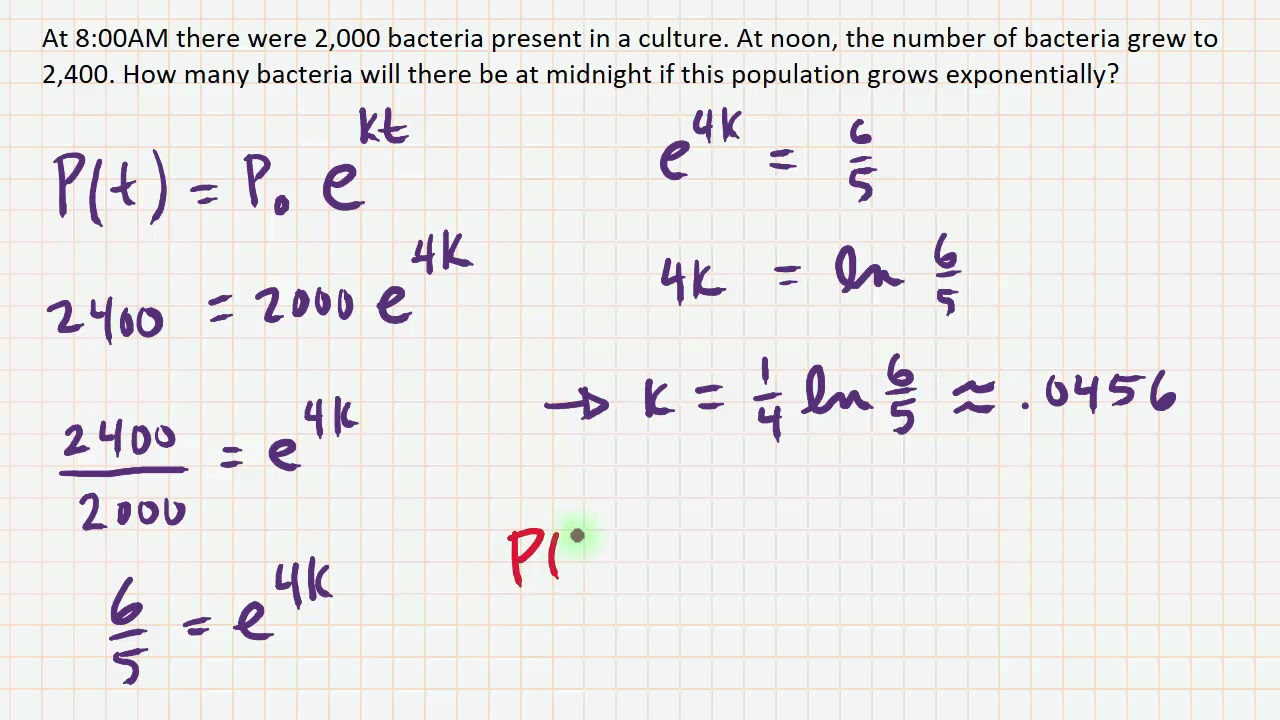 At 8:00AM there were 2,000 bacteria present in a culture. At noon, the number of bacteria grew to
2,400. How many bacteria will there be at midnight if this population grows exponentially?
P(t) = P₀ e^{kt}
2400 = 2000 e^{4k}
2400/2000 = e^{4k}
6/5 = e^{4k}
e^{4k} = 6/5
4k = ln 6/5
→ k = 1/4 ln 6/5 ≈ .0456
P(